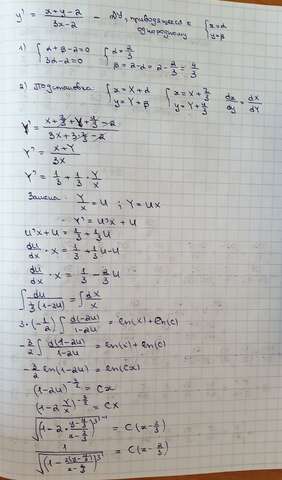 y' = (x+y-2)/(3x-2) – ДУ, приводящееся к однородному { x=α y=β
1) { α+β-2=0 3α-2=0 { α=2/3 β=2-α=2-2/3=4/3
2) Подстановка { x=X+α y=Y+β { x=X+2/3 y=Y+4/3 dx/dy = dX/dY
Y' = (X+2/3+Y+4/3-2)/(3X+3·2/3-2)
Y' = (X+Y)/3X
Y' = 1/3 + 1/3 · Y/X
Замена Y/X = U ; Y=UX
Y' = U'X+U
U'X+U = 1/3 + 1/3 U
dU/dX · X = 1/3 + 1/3 U - U
dU/dX · X = 1/3 - 2/3 U
∫ dU/(1/3(1-2U)) = ∫ dX/X
3·(-1/2) ∫ d(-2U)/(1-2U) = ln(X)+ln(C)
-3/2 ∫ d(1-2U)/(1-2U) = ln(X)+ln(C)
-3/2 ln(1-2U) = ln(CX)
(1-2U)^(-3/2) = CX
(1-2 Y/X)^(-3/2) = CX
= C(x-2/3)
= C(x-2/3)